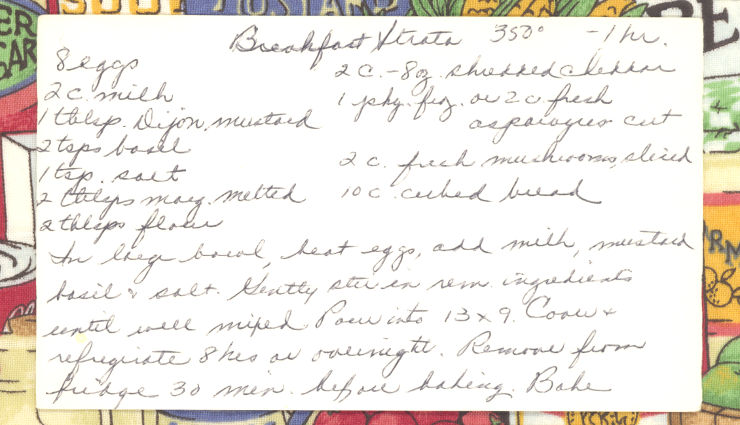 Breakfast Strata 350° - 1 hr.
8 eggs
2 c. milk
1 tblsp. Dijon mustard
2 tsps basil
1 tsp. salt
2 tblsps marg. melted
2 tblsps flour
2 c. - 8 oz. shredded cheddar
1 pkg. froz. or 2 c. fresh
asparagus cut
2 c. fresh mushrooms, sliced
10 c. cubed bread
In large bowl, beat eggs, add milk, mustard
basil & salt. Gently stir in rem. ingredients
until well mixed. Pour into 13 x 9. Cover +
refrigirate 8 hrs or overnight. Remove from
fridge 30 min. before baking. Bake
MUSTARD
ER